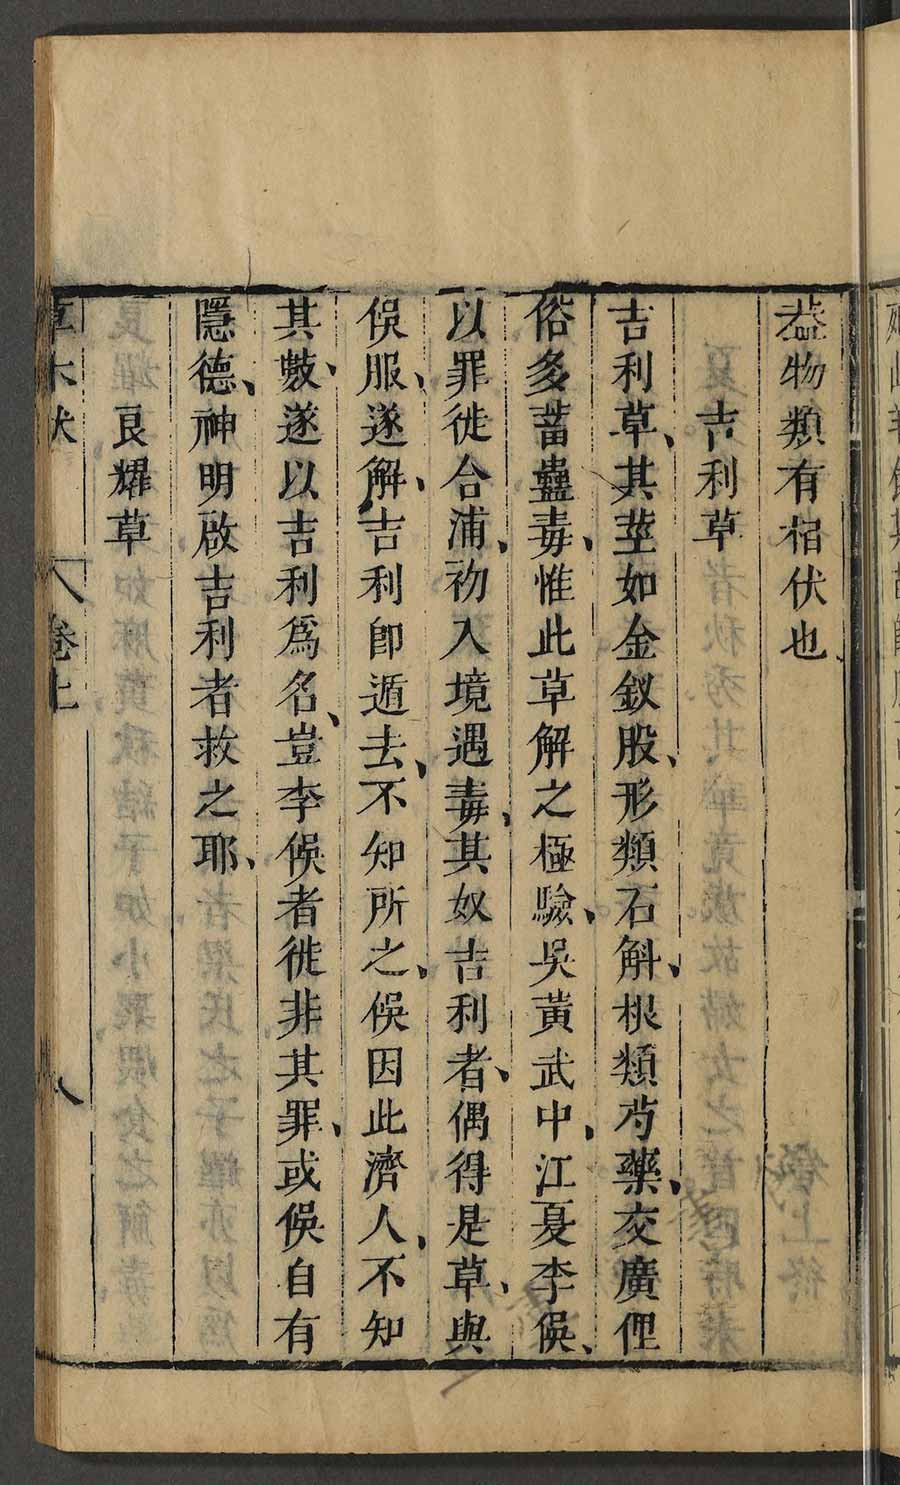 葢物類有相伏也
吉利草
吉利草、其莖如金釵股、形類石斛、根類芍藥、交廣俚
俗多蓄蠱毒、惟此草解之極驗、吳黃武中、江夏李俁、
以罪徙合浦、初入境遇毒、其奴吉利者、偶得是草、與
俁服、遂解、吉利卽遁去、不知所之、俁因此濟人、不知
其數、遂以吉利爲名、豈李俁者徙非其罪、或俁自有
隱德、神明啟吉利者救之耶、
良耀草
草木狀 卷上 八